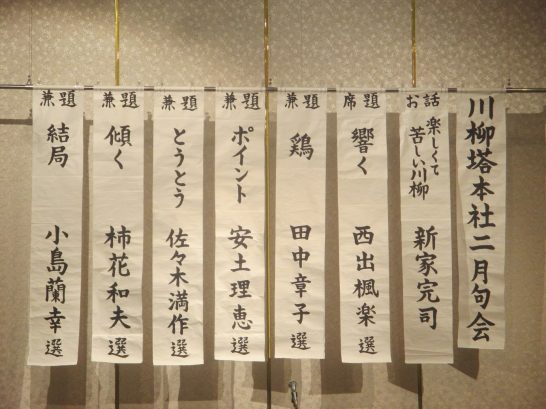 川柳塔本社二月句会
お話
楽しくて
苦しい川柳
新家完司
席題
響く
西出楓楽 選
兼題
鶏
田中章子 選
兼題
ポイント
安土理恵 選
兼題
とうとう
佐々木満作 選
兼題
傾く
柿花和夫 選
兼題
結局
小島蘭幸 選